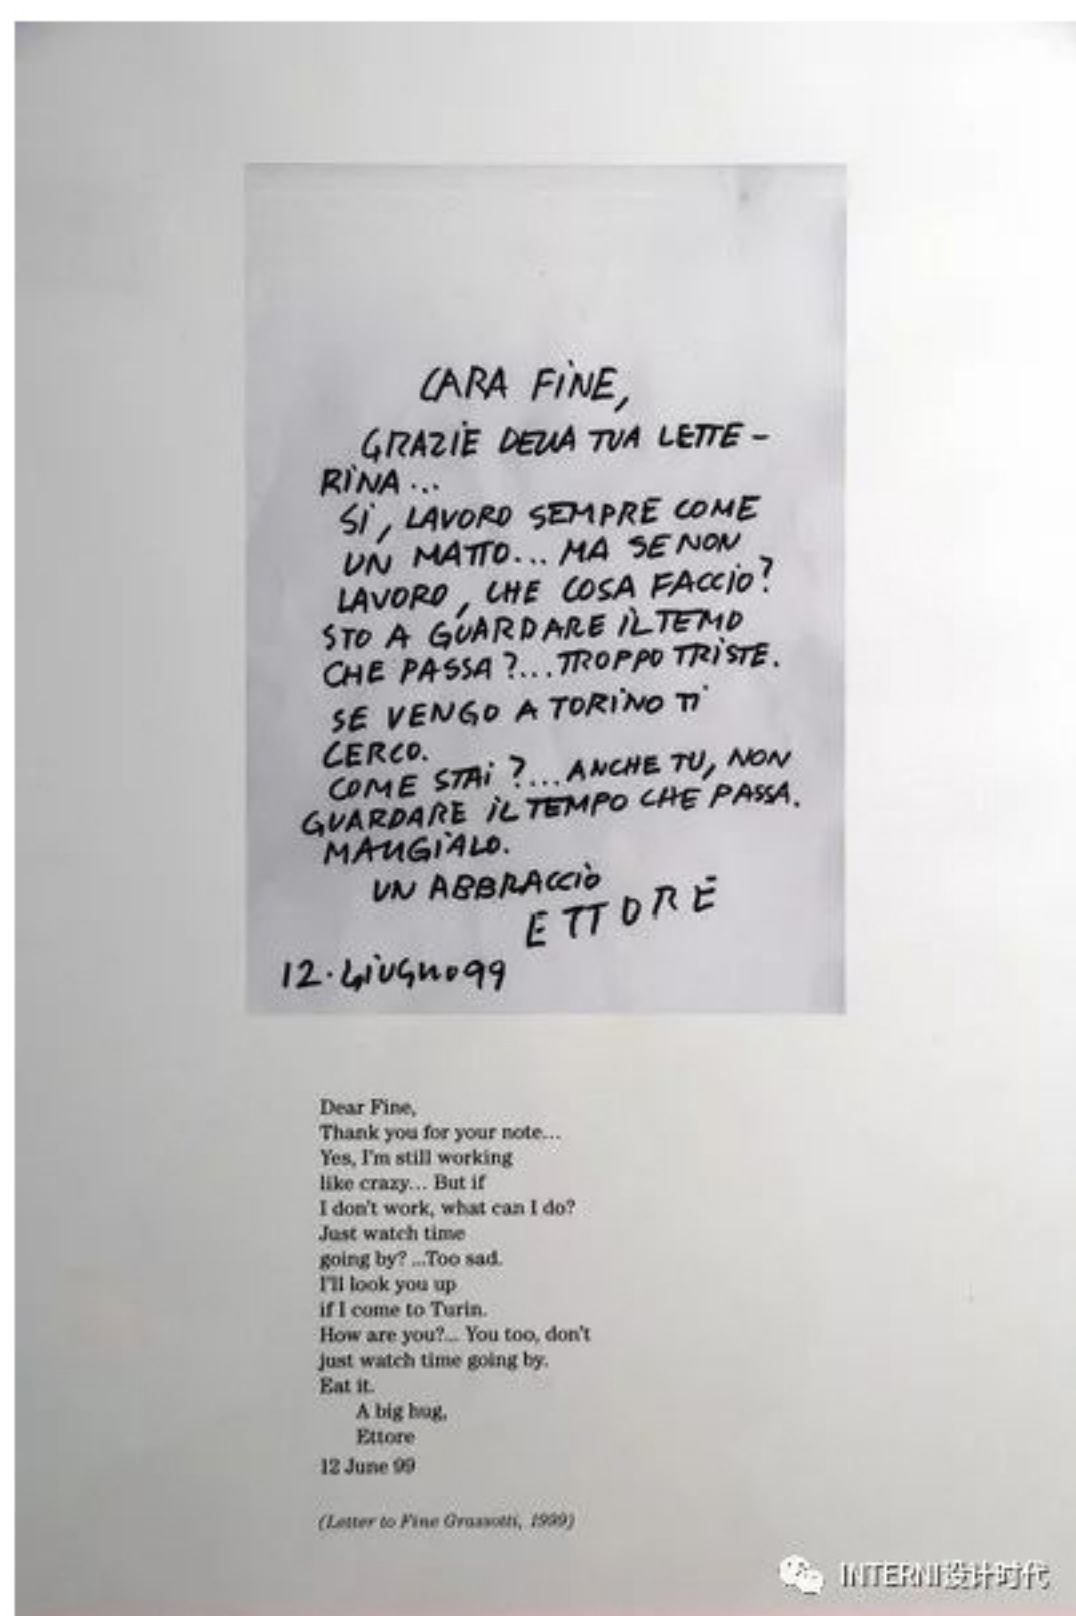 CARA FINE,
GRAZIE DELLA TUA LETTE-
RINA...
SI, LAVORO SEMPRE COME
UN MATTO... MA SE NON
LAVORO, CHE COSA FACCIO?
STO A GUARDARE IL TEMO
CHE PASSA?... TROPPO TRISTE.
SE VENGO A TORINO TI
CERCO.
COME STAI?... ANCHE TU, NON
GUARDARE IL TEMPO CHE PASSA.
MANGIALO.
UN ABBRACCIO
ETTORE
12. GIUGNO 99
Dear Fine,
Thank you for your note...
Yes, I'm still working
like crazy... But if
I don't work, what can I do?
Just watch time
going by? ...Too sad.
I'll look you up
if I come to Turin.
How are you?... You too, don't
just watch time going by.
Eat it.
A big hug,
Ettore
12 June 99
(Letter to Fine Grassotti, 1999)
INTERNI设计时代